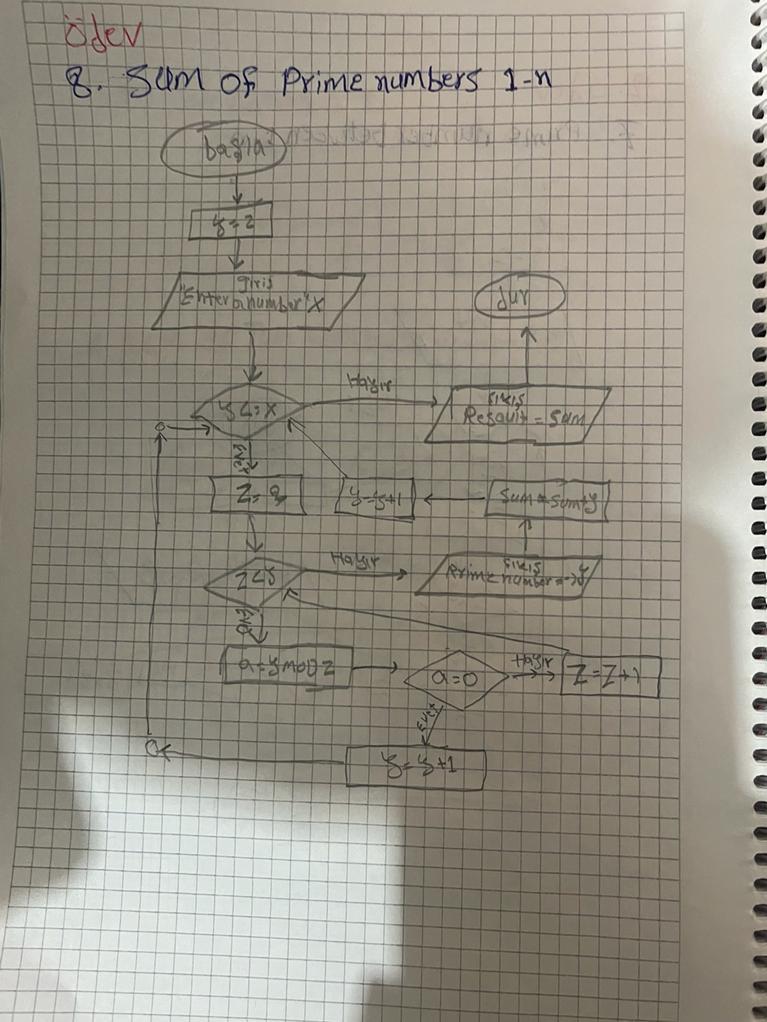 Ödev
8. Sum of Prime numbers 1-n
başla
y=2
giriş
"Enter a number" X
dur
y<=x
Hayır
çıkış
Resault = sum
Evet
Z=2
y=y+1
sum=sum+y
Z<y
Hayır
çıkış
Prime number=->y
Evet
a=ymodZ
a=0
Hayır
Z=Z+1
Evet
y=y+1